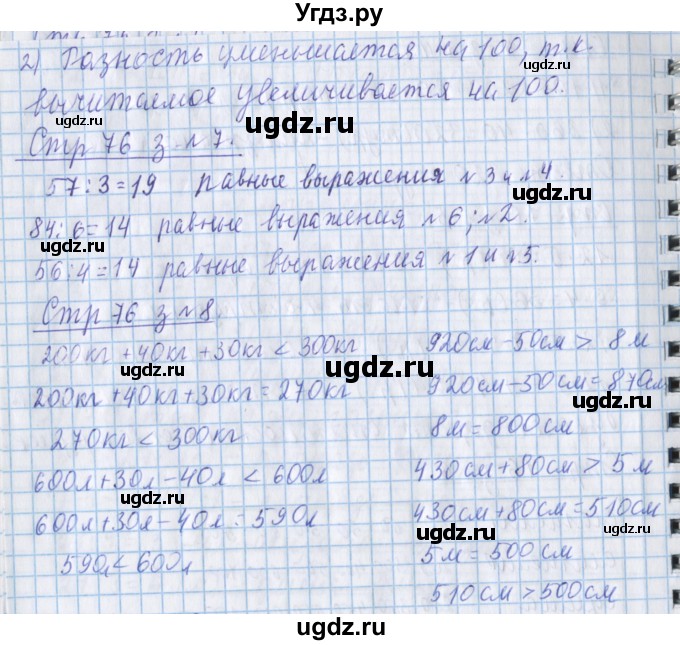 Угдз.ру
2) Разность уменьшается на 100, т.к.
вычитаемое увеличивается на 100.
ugdz.ru ugdz.ru
Стр 76 з №7. ugdz.ru
57:3=19 равные выражения №3 и №4.
84:6=14 равные выражения №6; №2.
ugdz.ru ugdz.ru
56:4=14 равные выражения №1 и №5.
Стр 76 з №8.
ugdz.ru
200кг+40кг+30кг<300кг
200кг+40кг+30кг=270кг
270кг<300кг
ugdz.ru
600л+30л-40л<600л
600л+30л-40л=590л
590л<600л
920см-50см>8м
ugdz.ru
920см-50см=870см
ugdz.ru
8м=800см
430см+80см>5м
ugdz.ru
430см+80см=510см
ugdz.ru
5м=500см
510см>500см
ugdz.ru
ugdz.ru
ugdz.ru